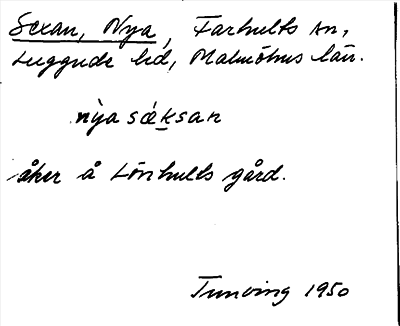 Sexan, Nya, Farhults sn,
Luggude hd, Malmöhus län.
nỳa sǽksan
åker å Lönhults gård.
Tunving 1950